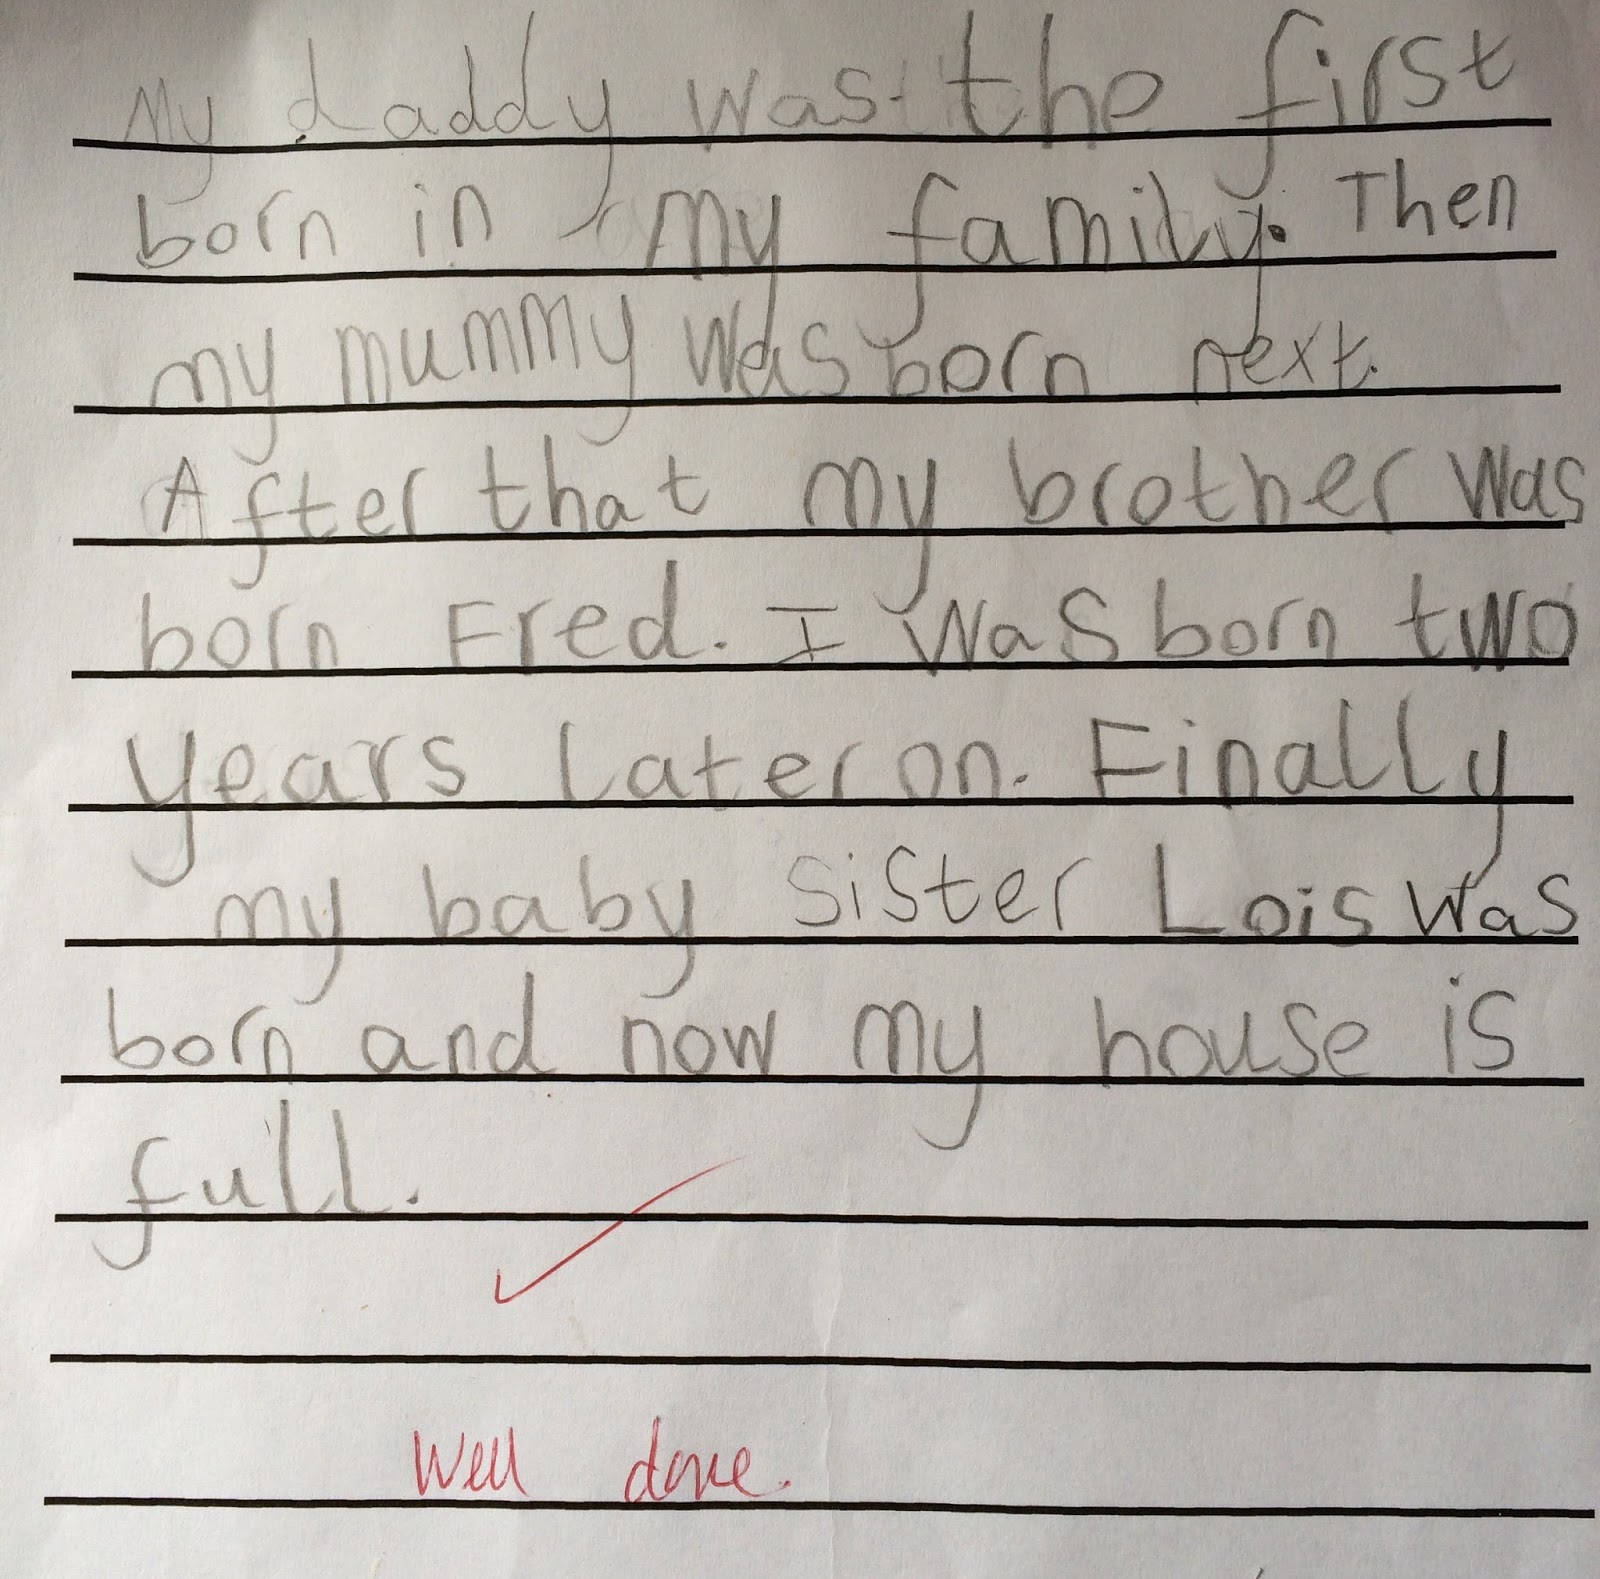 My daddy was the first
born in my family. Then
my mummy was born next.
After that my brother was
born Fred. I was born two
years later on. Finally
my baby sister Lois was
born and now my house is
full.
Well done.